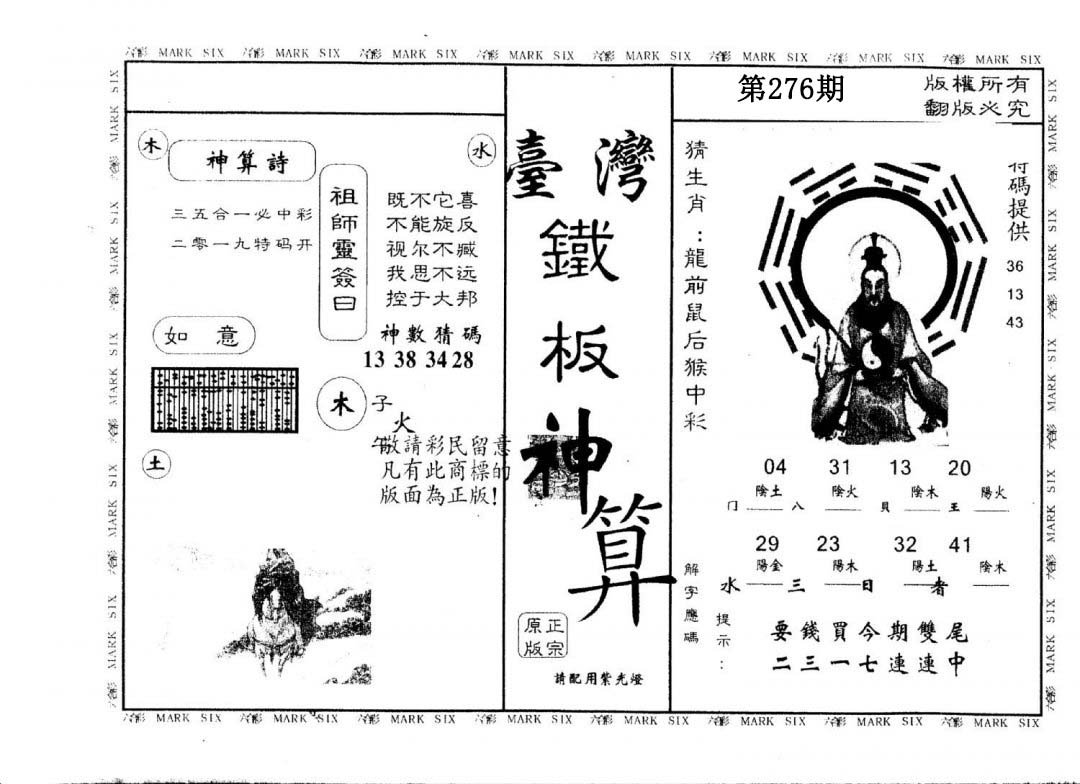 第276期
版權所有
翻版必究
木
神算詩
水
三五合一必中彩
二零一九特码开
祖師靈簽曰
既不它喜
不能旋反
视尔不臧
我思不远
控于大邦
神數猜碼
13 38 34 28
如意
木
子
火
午
敬請彩民留意
凡有此商標的
版面為正版!
土
臺灣
鐵板神算
正宗
原版
請配用紫光燈
猜生肖：龍前鼠后猴中彩
碼提供
36
13
43
04 31 13 20
陰土 陰火 陰木 陽火
门 八 貝 王
29 23 32 41
陽金 陽木 陽土 陰木
水 三 日 者
解字應碼
提示：
要錢買今期雙尾
二三一七連連中
六合彩 MARK SIX 六合彩 MARK SIX 六合彩 MARK SIX 六合彩 MARK SIX 六合彩 MARK SIX 六合彩 MARK SIX 六合彩 MARK SIX 六合彩 MARK SIX